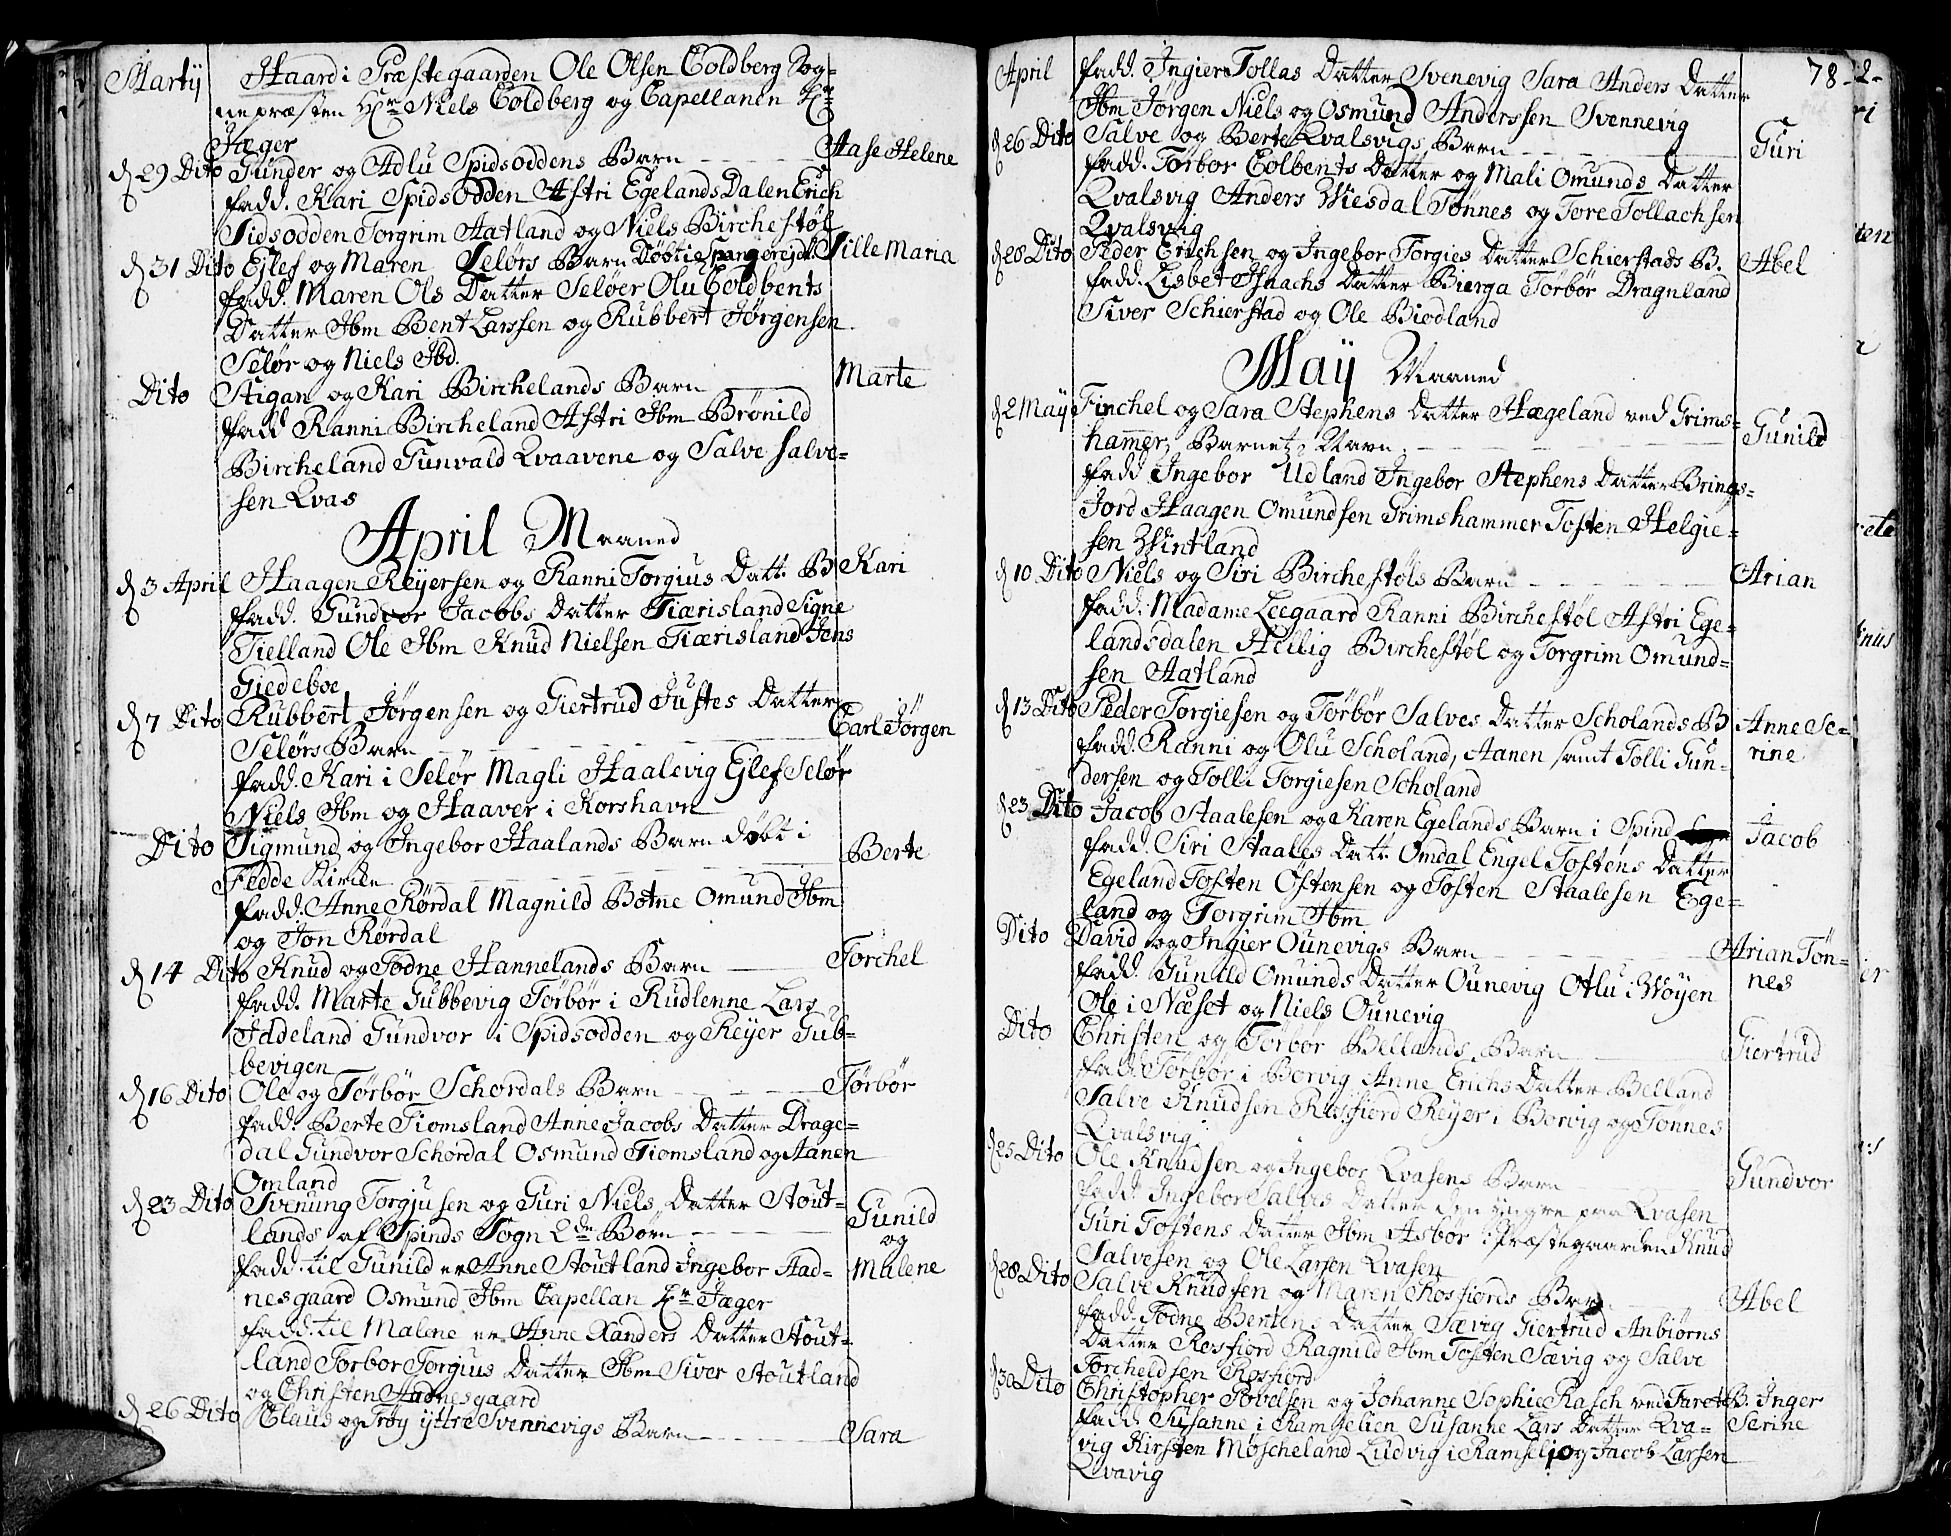 Martÿ Haard i Præstegaarden Ole Olsen Coldberg Sog-
nepræsten Hr Niels Coldberg og Capellanen Hr
Jæger
d 29 Dito Gunder og Adlu Spidsoddens Barn Aase Helene
fadd. Kari Spidsodden Astri Egelands Dalen Erich
Sidsodden Torgrim Aatland og Niels Birchestøl
d 31 Dito Ejlef og Maren Selørs Barn Døbt i Spangerejd Sille Maria
fadd. Maren Ols Datter Seløer Olu Coldbents
Datter Ibm Bent Larssen og Rubbert Jørgensen
Selør og Niels Ibd.
Dito Stigan og Kari Birchelands Barn Marte
fadd Ranni Bircheland Astri Ibm Brønild
Bircheland Gunvald Qvaavene og Salve Salve-
sen Qvas
April Maaned
d 3 April Haagen Reÿersen og Ranni Torgius Datt. B Kari
fadd. Gundvor Jacobs Datter Tiærisland Signe
Tielland Ole Ibm Knud Nielsen Tiærisland Jens
Giedeboe
d 7 Dito Rubbert Jørgensen og Giertrud Justes Datter Carl Jørgen
Selørs Barn
fadd. Kari i Selør Magli Haalevig Ejlef Selør
Niels Ibm og Haaver i Korshavn
Dito Sigmund og Ingebor Haalands Barn døbt i Berte
Fedde Kirke
fadd. Anne Rørdal Magnild Botne Omund Ibm
og Jon Rørdal
d 14 Dito Knud og Todne Hannelands Barn Torchel
fadd. Marte Gubbevig Tørbør i Rudlenne Lars
Jadeland Gundvor i Spidsodden og Reÿer Gub-
bevigen
d 16 Dito Ole og Tørbør Schordals Barn Tørbør
fadd. Berte Tiomsland Anne Jacobs Datter Drage-
dal Gundvor Schordal Osmund Tiomsland og Aanen
Omland
d 23 Dito Svenung Torgjusen og Guri Niels Datter Stout- Gunild
lands af Spinds Sogn 2de Børn og
fadd. til Gunild er Anne Stoutland Ingebor Aad- Malene
nesgaard Osmund Ibm Capellan Hr Jæger
fadd. til Malene er Anne Xanders Datter Stout-
land Torbor Torgius Datter Ibm Siver Stoutland
og Christen Aadnesgaard
d 26 Dito Claus og Trøy ÿttre Svennevigs Barn Sara
78
April fadd. Ingier Tollas Datter Svenevig Sara Anders Datter
Ibm Jørgen Niels og Osmund Anderssen Svennevig
d 26 Dito Salve og Berte Qvalsvigs Barn Guri
fadd. Torbor Colbents Datter og Mali Omunds Datter
Qvalsvig Anders Wiesdal Tønnes og Tore Tollachsen
Qvalsvig
d 28 Dito Peder Erichsen og Ingebor Torgies Datter Schierstads B. Abel
fadd. Lisbet Isaachs Datter Bierga Tørbør Dragnland
Siver Schierstad og Ole Biodland
Maÿ Maaned
d 2 Maÿ Finchel og Sara Stephens Datter Hægeland ved Grims-
hamer, Barnetz Navn Gunild
fadd Ingebor Udland Ingebor Stephens Datter Brings-
Jord Haagen Omundsen Grimshammer Tosten Helgie-
sen Wintland
d 10 Dito Niels og Siri Birchestøls Barn Arian
fadd. Madame Leegaard Ranni Birchestøl Astri Ege-
landsdalen Hellig Birchestøl og Torgrim Omund-
sen Aatland
d 13 Dito Peder Torgiesen og Tørbør Salves Datter Scholands B Anne Se-
fadd. Ranni og Olu Scholand, Aanen samt Tolli Gun- rine
dersen og Tolli Torgiesen Scholand
d 23 Dito Jacob Staalesen og Karen Egelands Barn i Spind Jacob
fadd. Siri Staales Datt. Omdal Engel Tostens Datter
Egeland Tosten Ostensen og Tosten Staalesen Ege-
land og Torgrim Ibm
Dito David og Ingier Ounevigs Barn Arian Tøn-
fadd. Gunild Omunds Datter Ounevig Otlu i Woÿen nes
Ole i Næset og Niels Ounevig
Dito Christen og Torbor Bellands Barn Giertrud
fadd. Torbør i Borvig Anne Erichs Datter Belland
Salve Knudsen Rosfiord Reÿer i Borvig og Tønnes
Qvalsvig
d 25 Dito Ole Knudsen og Ingebor Qvasens Barn Gundvor
fadd. Ingebor Salves Datter den yngre paa Qvasen
Guri Tostens Datter Ibm Asbør i Præstegaarden Knud
Salvesen og Ole Larsen Qvasen
d 28 Dito Salve Knudsen og Maren Rosfiords Barn Abel
fadd. Todne Bentens Datter Sævig Giertrud Anbiørns
Datter Rosfiord Ragnild Ibm Tosten Sævig og Salve
Torcheldsen Rosfiord
d 30 Dito Christopher Povelsen og Johanne Sophie Rasch ved Farets B. Inger
fadd. Susanne i Ramselien Susanne Lars Datter Qva- Serine
vig Kirsten Moscheland Ludvig i Ramseli og Jacob Larsen
Qvavig